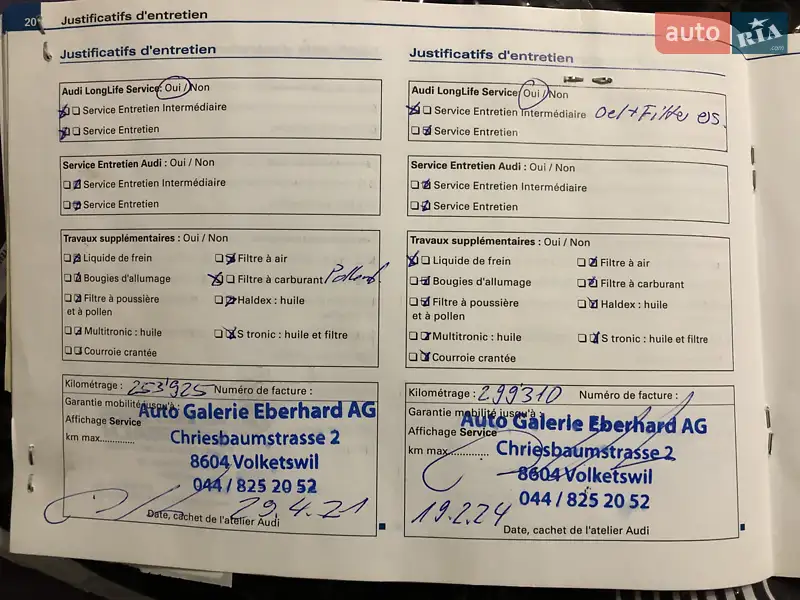 20
Justificatifs d'entretien
auto RIA .com
Justificatifs d'entretien
Audi LongLife Service: Oui / Non
Service Entretien Intermédiaire
Service Entretien
Service Entretien Audi : Oui / Non
Service Entretien Intermédiaire
Service Entretien
Travaux supplémentaires : Oui / Non
Liquide de frein
Filtre à air
Bougies d'allumage
Filtre à carburant Pollenf.
Filtre à poussière
et à pollen
Haldex : huile
Multitronic : huile
S tronic : huile et filtre
Courroie crantée
Kilométrage : 253'925 Numéro de facture :
Garantie mobilité jusqu'à :
Affichage Service
km max.............
Auto Galerie Eberhard AG
Chriesbaumstrasse 2
8604 Volketswil
044 / 825 20 52
29.4.21
Date, cachet de l'atelier Audi
Justificatifs d'entretien
Audi LongLife Service: Oui / Non
Service Entretien Intermédiaire Oel + Filter
Service Entretien
Service Entretien Audi : Oui / Non
Service Entretien Intermédiaire
Service Entretien
Travaux supplémentaires : Oui / Non
Liquide de frein
Filtre à air
Bougies d'allumage
Filtre à carburant
Filtre à poussière
et à pollen
Haldex : huile
Multitronic : huile
S tronic : huile et filtre
Courroie crantée
Kilométrage : 299310 Numéro de facture :
Garantie mobilité jusqu'à :
Affichage Service
km max.............
Auto Galerie Eberhard AG
Chriesbaumstrasse 2
8604 Volketswil
044 / 825 20 52
19.2.24
Date, cachet de l'atelier Audi